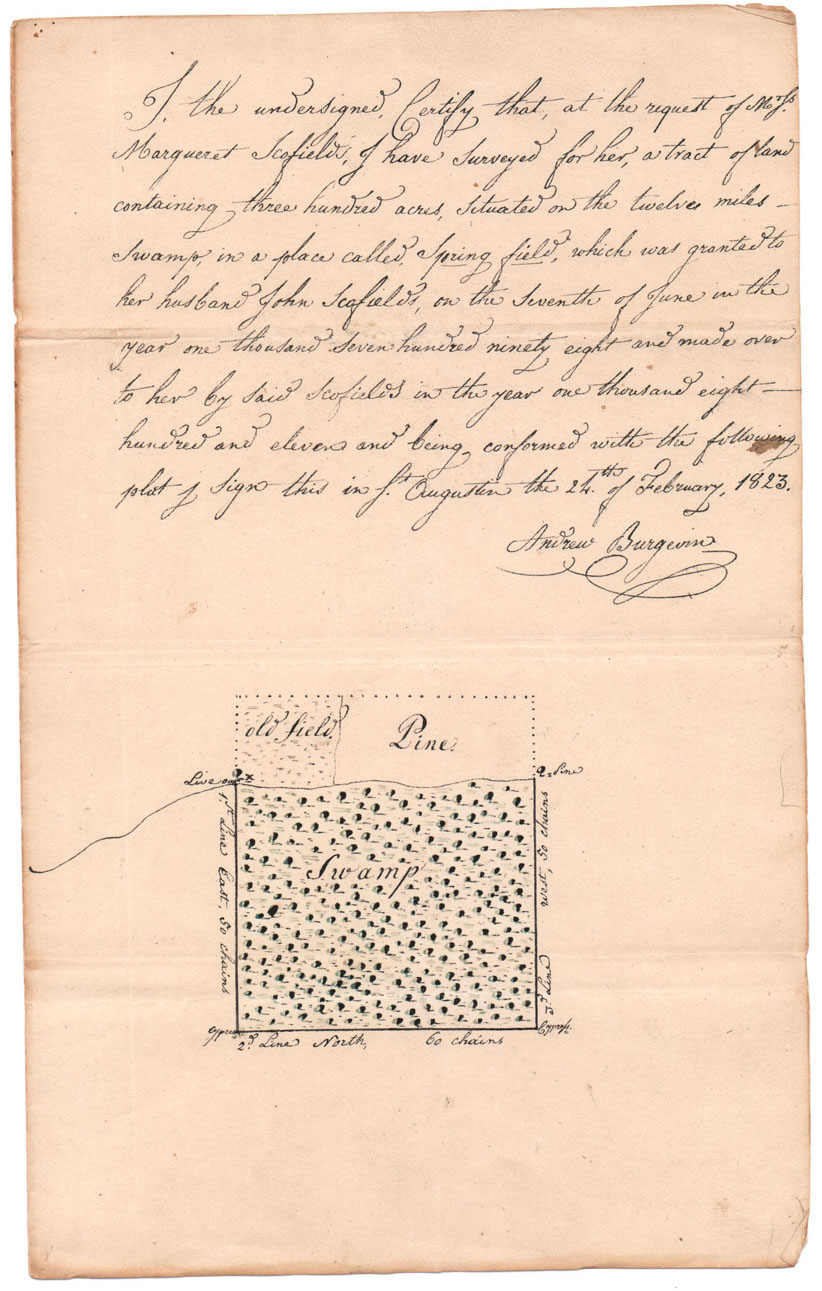 I, the undersigned, Certify that, at the request of Mrs.
Margueret Scofields, I have surveyed for her, a tract of land
containing three hundred acres, situated on the twelve miles –
swamp, in a place called, Spring field, which was granted to
her husband John Scofields, on the seventh of June in the
year one thousand seven hundred ninety eight and made over
to her by said Scofields in the year one thousand eight –
hundred and eleven and being conformed with the following
plat I sign this in St. Augustin the 24th of February, 1823.
Andrew Burgevin
old field.
Pine.
Live oak x
Pine
1st Line East, 50 chains
3d Line West, 50 chains
Swamp
Cypress
Cypress
2d Line North, 60 chains